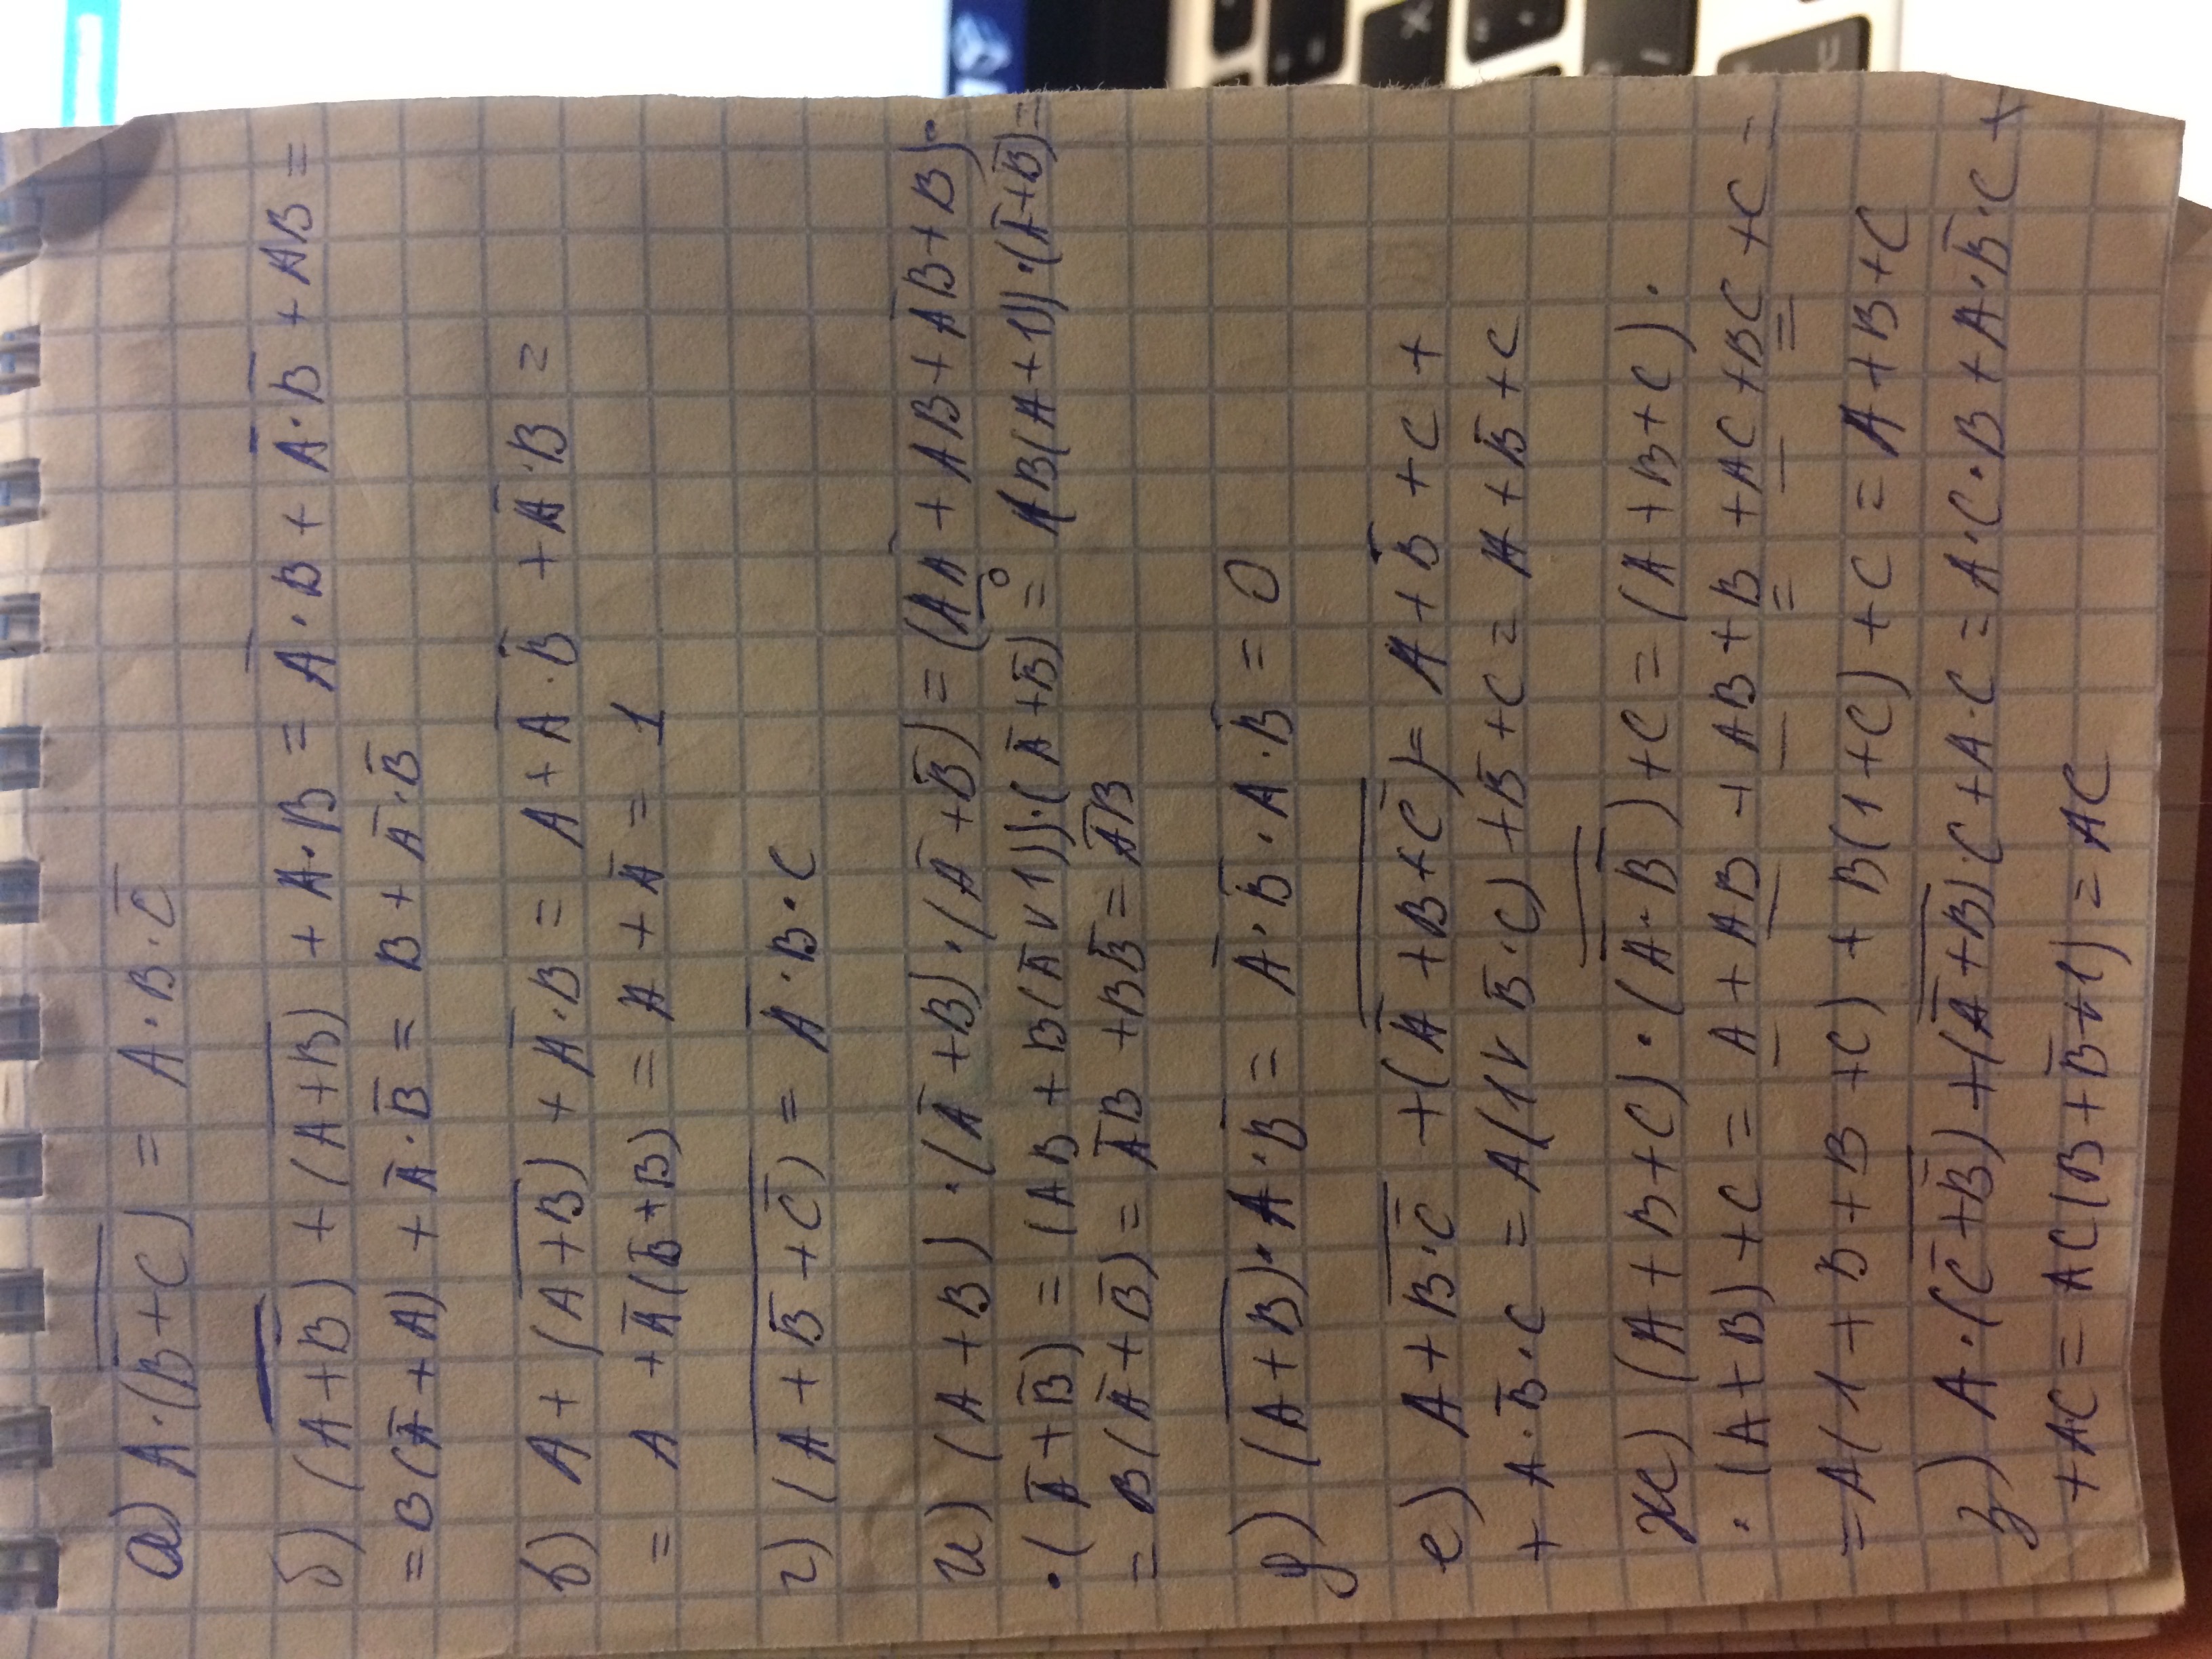 а) A·(B̅+C)̅ = A·B·C̅
б) (A+B̅)̅ + (A+B)̅ + A·B = A̅·B + A̅·B̅ + AB =
= B(A̅+A) + A̅·B̅ = B + A̅·B̅
в) A + (A+B)̅ + A̅·B = A + A̅·B̅ + A̅·B =
= A + A̅(B̅+B) = A + A̅ = 1
г) (A + B̅ + C̅)̅ = A̅·B·C
и) (A+B)·(A̅+B)·(A̅+B̅) = (AA̅ + AB + A̅B + B)·
0
·(A̅+B̅) = (AB + B(A̅ v 1))·(A̅+B̅) = AB(A+1))·(A̅+B̅) =
= B(A̅+B̅) = A̅B + BB̅ = A̅B
д) (A+B)̅·A·B̅ = A̅·B̅·A·B̅ = 0
е) A + B·C̅̅ + (A̅+B+C̅)̅ = A + B̅ + C +
+ A·B̅·C = A(1 v B̅·C) + B̅ + C = A + B̅ + C
ж) (A+B+C)·(A̅·B̅)̅ + C = (A+B+C)·
·(A+B) + C = A + AB + AB + B + AC + BC + C =
= A(1+B+B+C) + B(1+C) + C = A+B+C
з) A·(C̅+B̅)̅ + (A̅+B)̅·C + A·C = A·C·B + A·B̅·C +
+ AC = AC(B+B̅+1) = AC